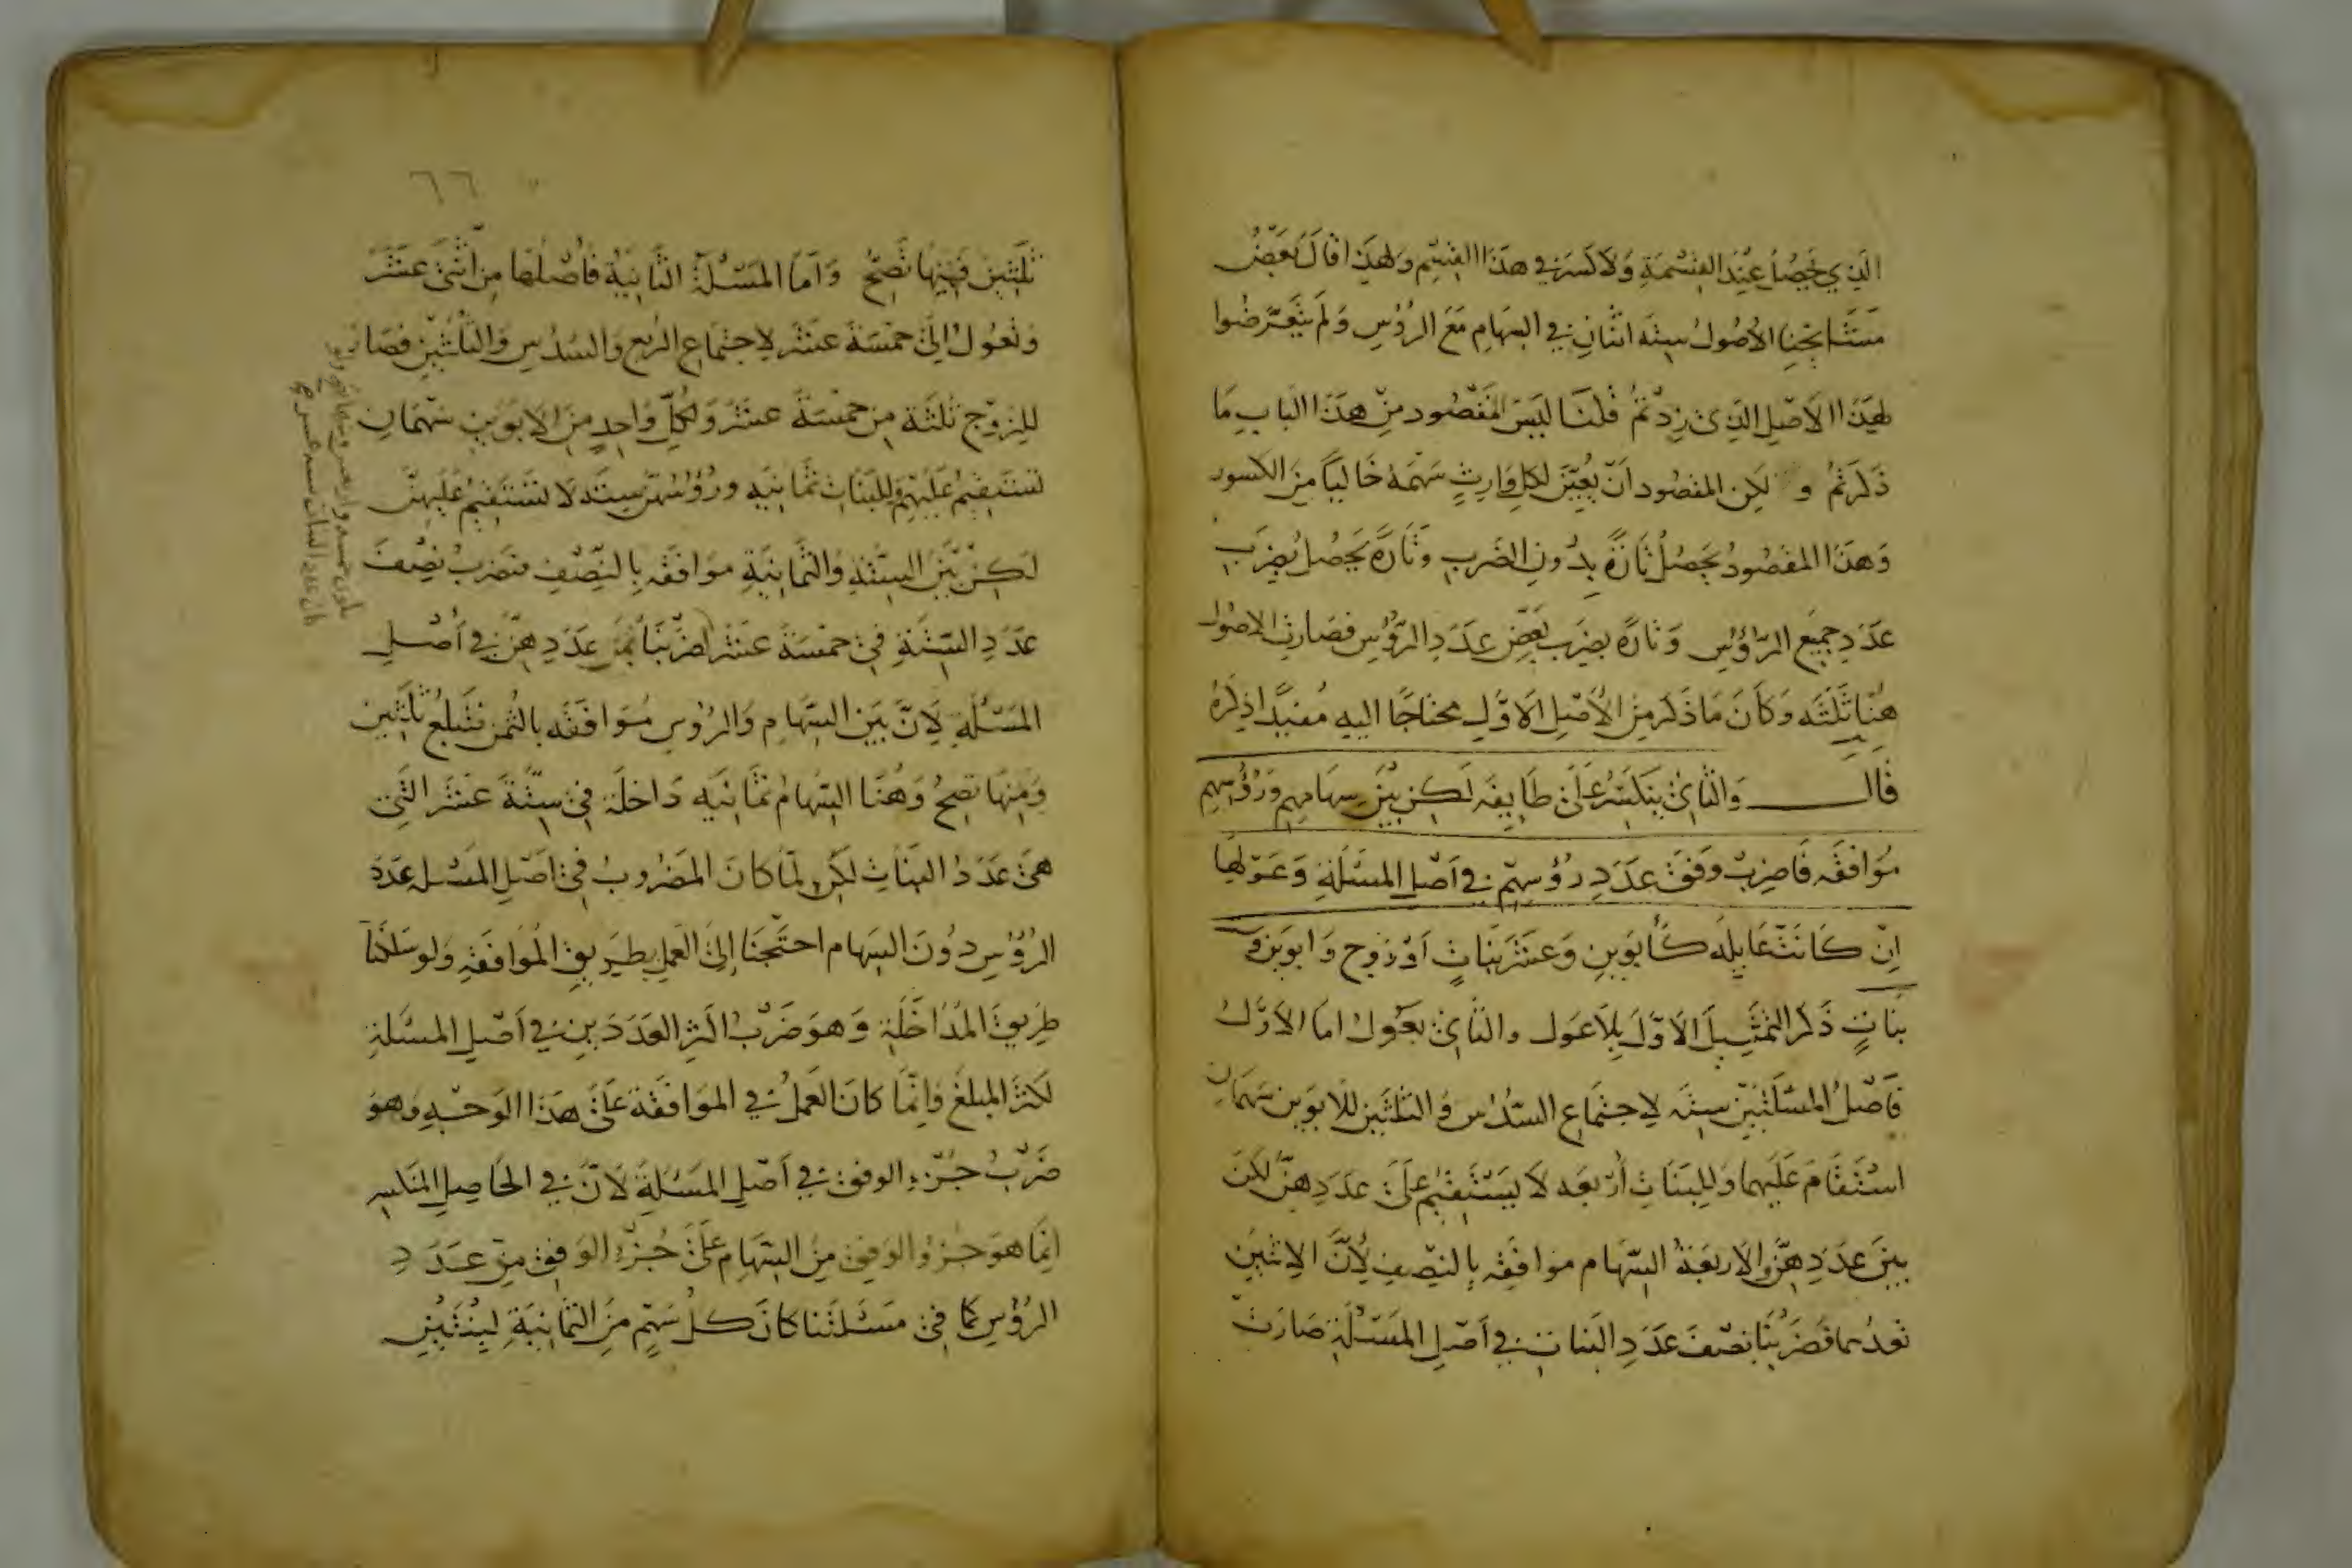 الذي يحصل عند القسمة ولا كسر في هذا القسم ولهذا قال بعض
مشايخنا الاصول ستة اثنان في السهام مع الرؤس ولم يتعرضوا
لهذا الاصل الذي زدتم قلنا ليس المقصود من هذا الباب ما
ذكرتم و لكن المقصود ان يعين لكل وارث سهمه خاليا من الكسور
وهذا المقصود يحصل تارة بدون الضرب وتارة يحصل بضرب
عدد جميع الرؤس وتارة بضرب بعض عدد الرؤس فصارت الاصول
هنا ثلثه وكان ما ذكر من الاصل الاول محتاجا اليه مفيدا ذكره
قال والثاني ينكسر على طايفه لكن بين سهامهم ورؤسهم
موافقه فاضرب وفق عدد رؤسهم في اصل المسئلة وعولها
ان كانت عايله كأبوين وعشر بنات او زوج وابوين و
بنات ذكر التمثيل الاول بلا عول والثاني بعول اما الاول
فاصل المسئلتين سته لاجتماع السدس والثلثين للابوين سهمان
استقام عليهما وللبنات أربعه لا يستقيم على عددهن لكن
بين عددهن والاربعة السهام موافقه بالنصف لأن الاثنين
تعدهما فضربنا نصف عدد البنات في اصل المسئلة صارت
٦٦
ثلثين فمنها تصح واما المسئلة الثانية فاصلها من اثنى عشر
وتعول الى خمسة عشر لاجتماع الربع والسدس والثلثين فصار
للزوج ثلثة من خمسة عشر ولكل واحد من الابوين سهمان
تستقيم عليهم وللبنات ثمانيه ورؤسهن سته لا تستقيم عليهن
لكن بين الستة والثمانية موافقه بالنصف فتضرب نصف
عدد الستة في خمسة عشر عددهن في أصل
المسئلة لان بين السهام والرؤس موافقه بالثمن فتبلغ ثلثين
ومنها تصح وهنا السهام ثمانيه داخلة في ستة عشر التي
هي عدد البنات لكن لما كان المضروب في اصل المسئله عدد
الرؤس دون السهام احتجنا إلى العمل بطريق الموافقة ولو سلكنا
طريق المداخلة وهو ضرب اكثر العددين في أصل المسئلة
لكثر المبلغ وانما كان العمل في الموافقة على هذا الوجه وهو
ضرب جزء الوفق في أصل المسئلة لان في الحاصل المنكسر
انما هو جزو الوفق من السهام على جزء الوفق من عدد
الرؤس كما في مسئلتنا كان كل سهم من الثمانية لبنتين